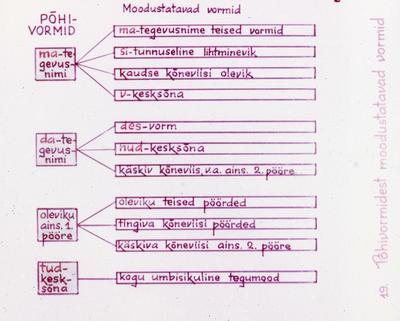 PÕHI-
VORMID
Moodustatavad vormid
ma-te-
gevus-
nimi
ma-tegevusnime teised vormid
si-tunnuseline lihtminevik
kaudse kõneviisi olevik
v-kesksõna
da-te-
gevus-
nimi
des-vorm
nud-kesksõna
käskiv kõneviis, v.a. ains. 2. pööre
oleviku
ains. 1.
pööre
oleviku teised pöörded
tingiva kõneviisi pöörded
käskiva kõneviisi ains. 2. pööre
tud-
kesk-
sõna
kogu umbisikuline tegumood
19. Põhivormidest moodustatavad vormid